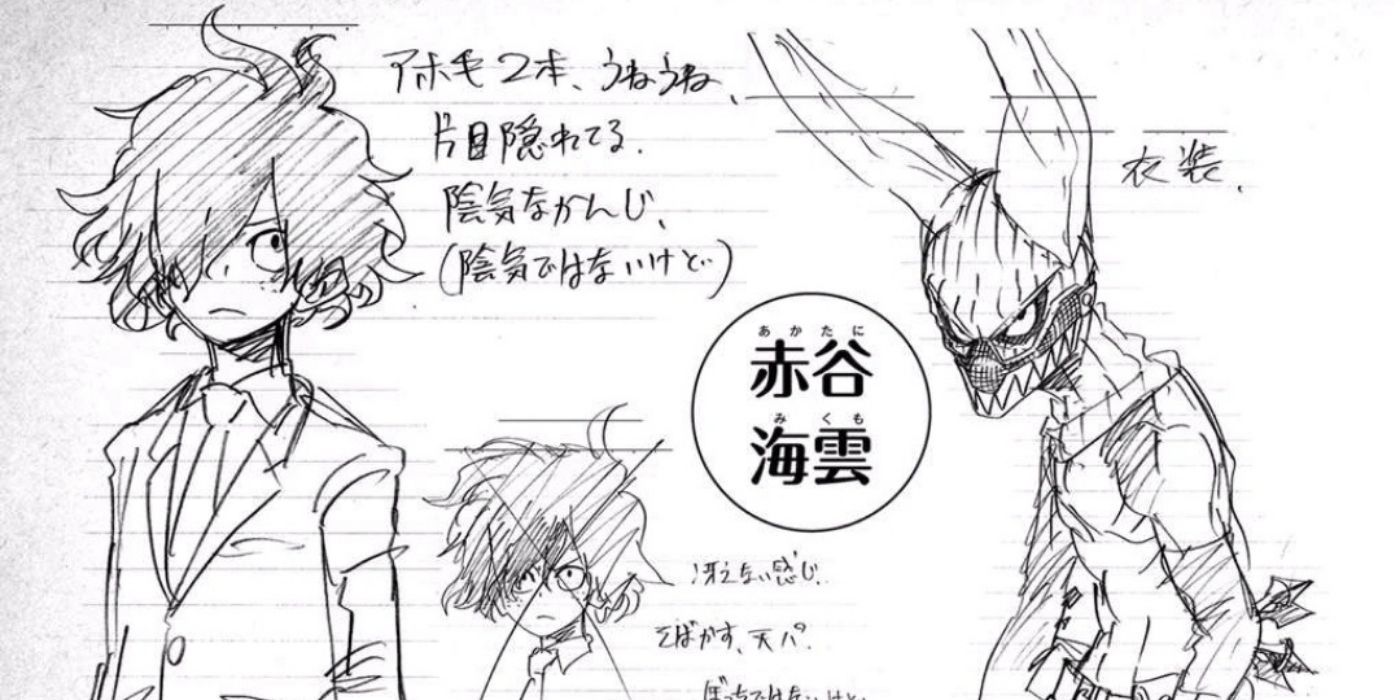 アホ毛2本、うねうね、
片目隠れてる.
陰気なかんじ、
(陰気ではないけど…)
衣装.
あかたに
赤谷
みくも
海雲
冴えない感じ.
そばかす、天パ.
ぼっちではないけど、